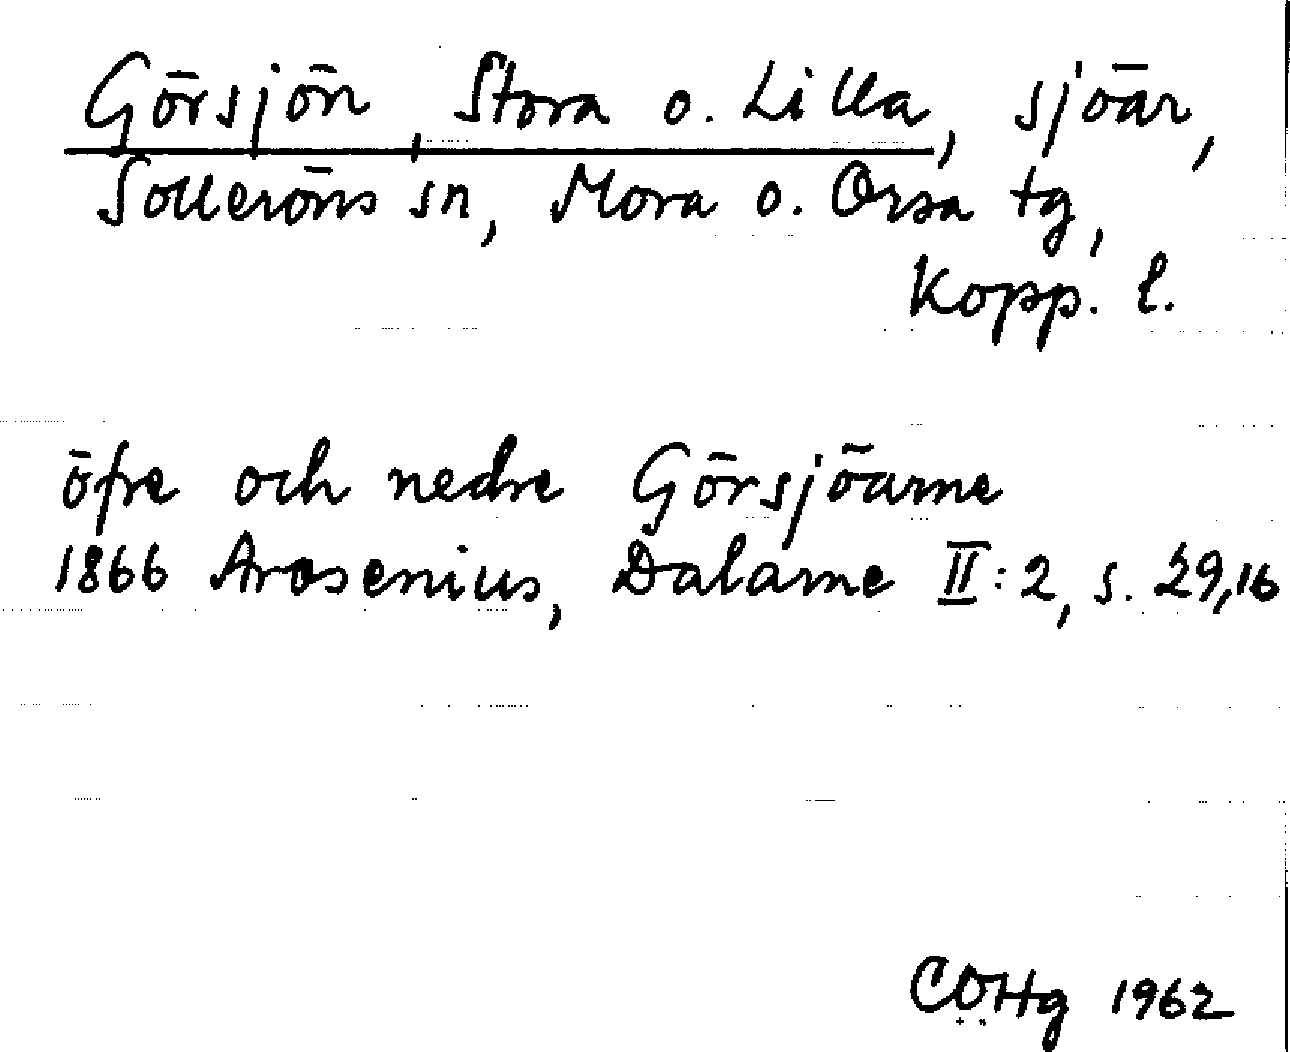 Görsjön, Stora o. Lilla, sjöar,
Solleröns sn, Mora o. Orsa tg,
Kopp. l.
öfre och nedre Görsjöarne
1866 Arosenius, Dalarne II:2, s. 29,16
COHg 1962